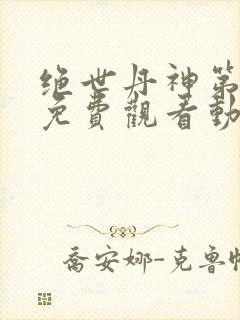 绝世丹神第
免費觀看動
喬安娜-克鲁